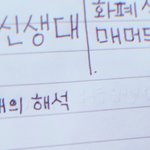 신생대
화폐
매머드
의 해석